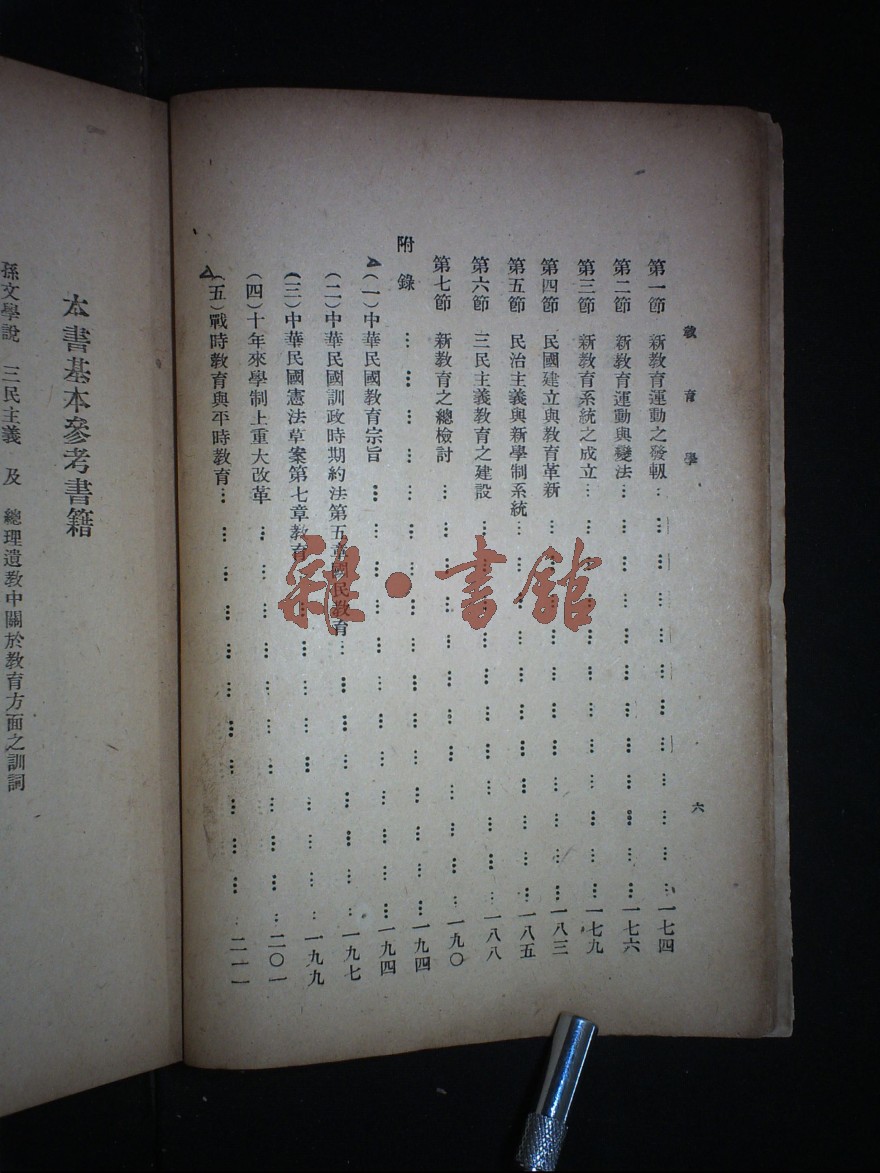 教育學
六
第一節 新教育運動之發軔……一七四
第二節 新教育運動與變法……一七六
第三節 新教育系統之成立……一七九
第四節 民國建立與教育革新……一八三
第五節 民治主義與新學制系統……一八五
第六節 三民主義教育之建設……一八八
第七節 新教育之總檢討……一九〇
附錄……一九四
(一)中華民國教育宗旨……一九四
(二)中華民國訓政時期約法第五章國民教育……一九七
(三)中華民國憲法草案第七章教育……一九九
(四)十年來學制上重大改革……二〇一
(五)戰時教育與平時教育……二一一
本書基本參考書籍
孫文學說 三民主義 及 總理遺教中關於教育方面之訓詞
雜·書館